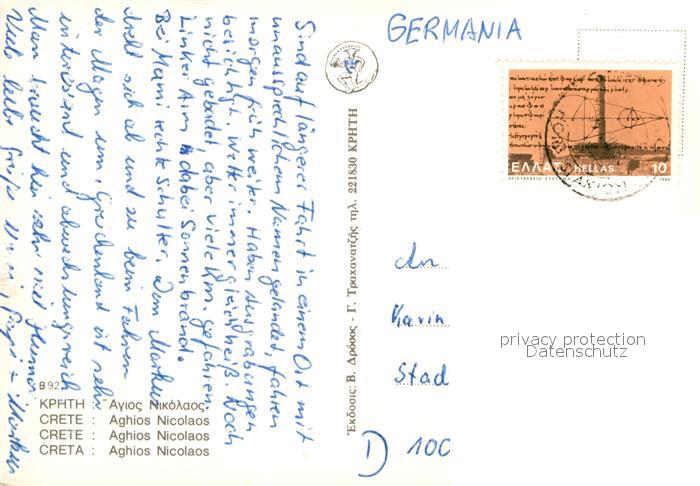 GERMANIA
Sind auf längerer Fahrt in einem Ort mit
unaussprechlichem Namen gelandet, fahren
morgen früh weiter. Haben Ausgrabungen
besichtigt. Wetter immer gleich heiß. Noch
nicht gebadet, aber viele Km. gefahren
Linker Arm dabei Sonnenbrand.
Bei Mami rechte Schulter. Dem Markus
dreht sich ab und zu beim Fahren
der Magen um. Griechenland ist sehr
interessant und abwechslungsreich
Man braucht hier sehr viel Humor
Viele liebe Grüße Mami, Papi + Markus
B 92
ΚΡΗΤΗ : Άγιος Νικόλαος.
CRETE : Aghios Nicolaos
CRETE : Aghios Nicolaos
CRETA : Aghios Nicolaos
Έκδοσις: Β. Δρόσος - Γ. Τραχανατζής τηλ. 221830 ΚΡΗΤΗ
ΕΛΛΑΣ HELLAS 10
1980
An
Karin
Stad
D 100
privacy protection
Datenschutz